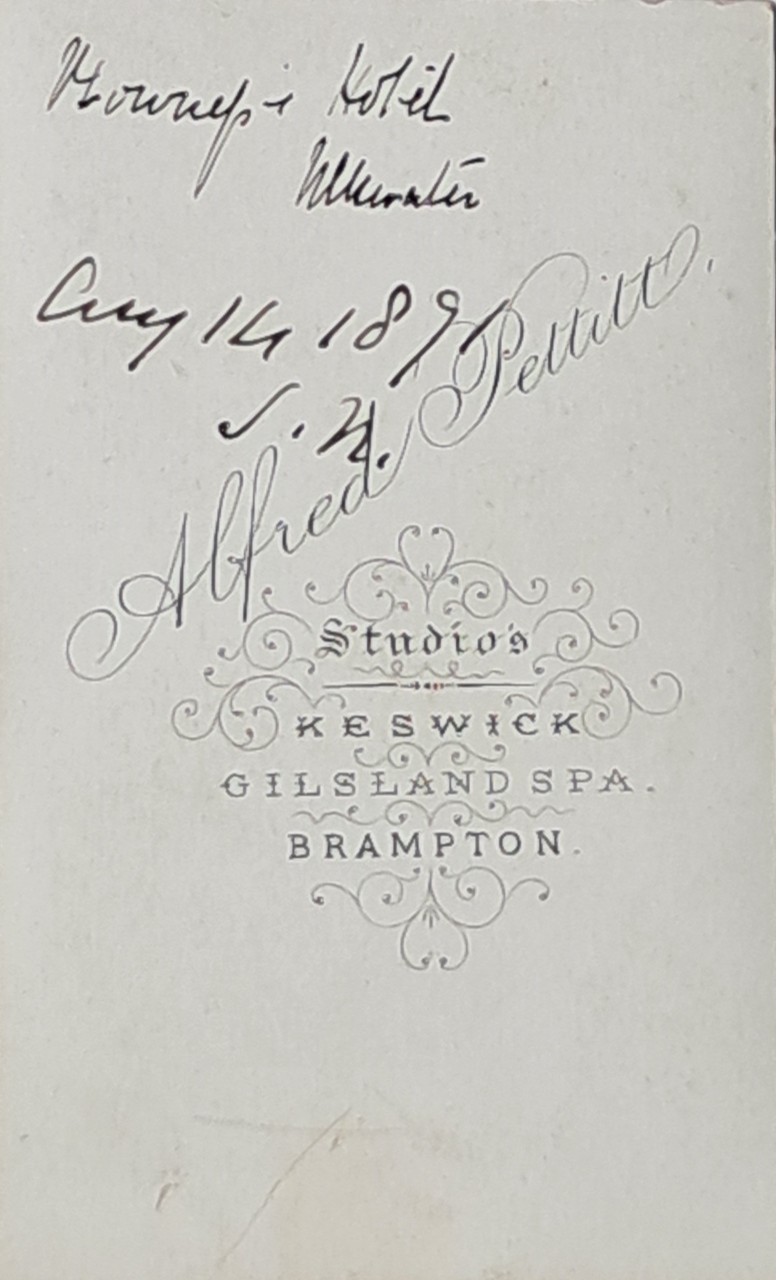 Hotel
Ullswater
Aug 14 1891
Alfred Pettitt.
Studio's
KESWICK
GILSLAND SPA.
BRAMPTON.